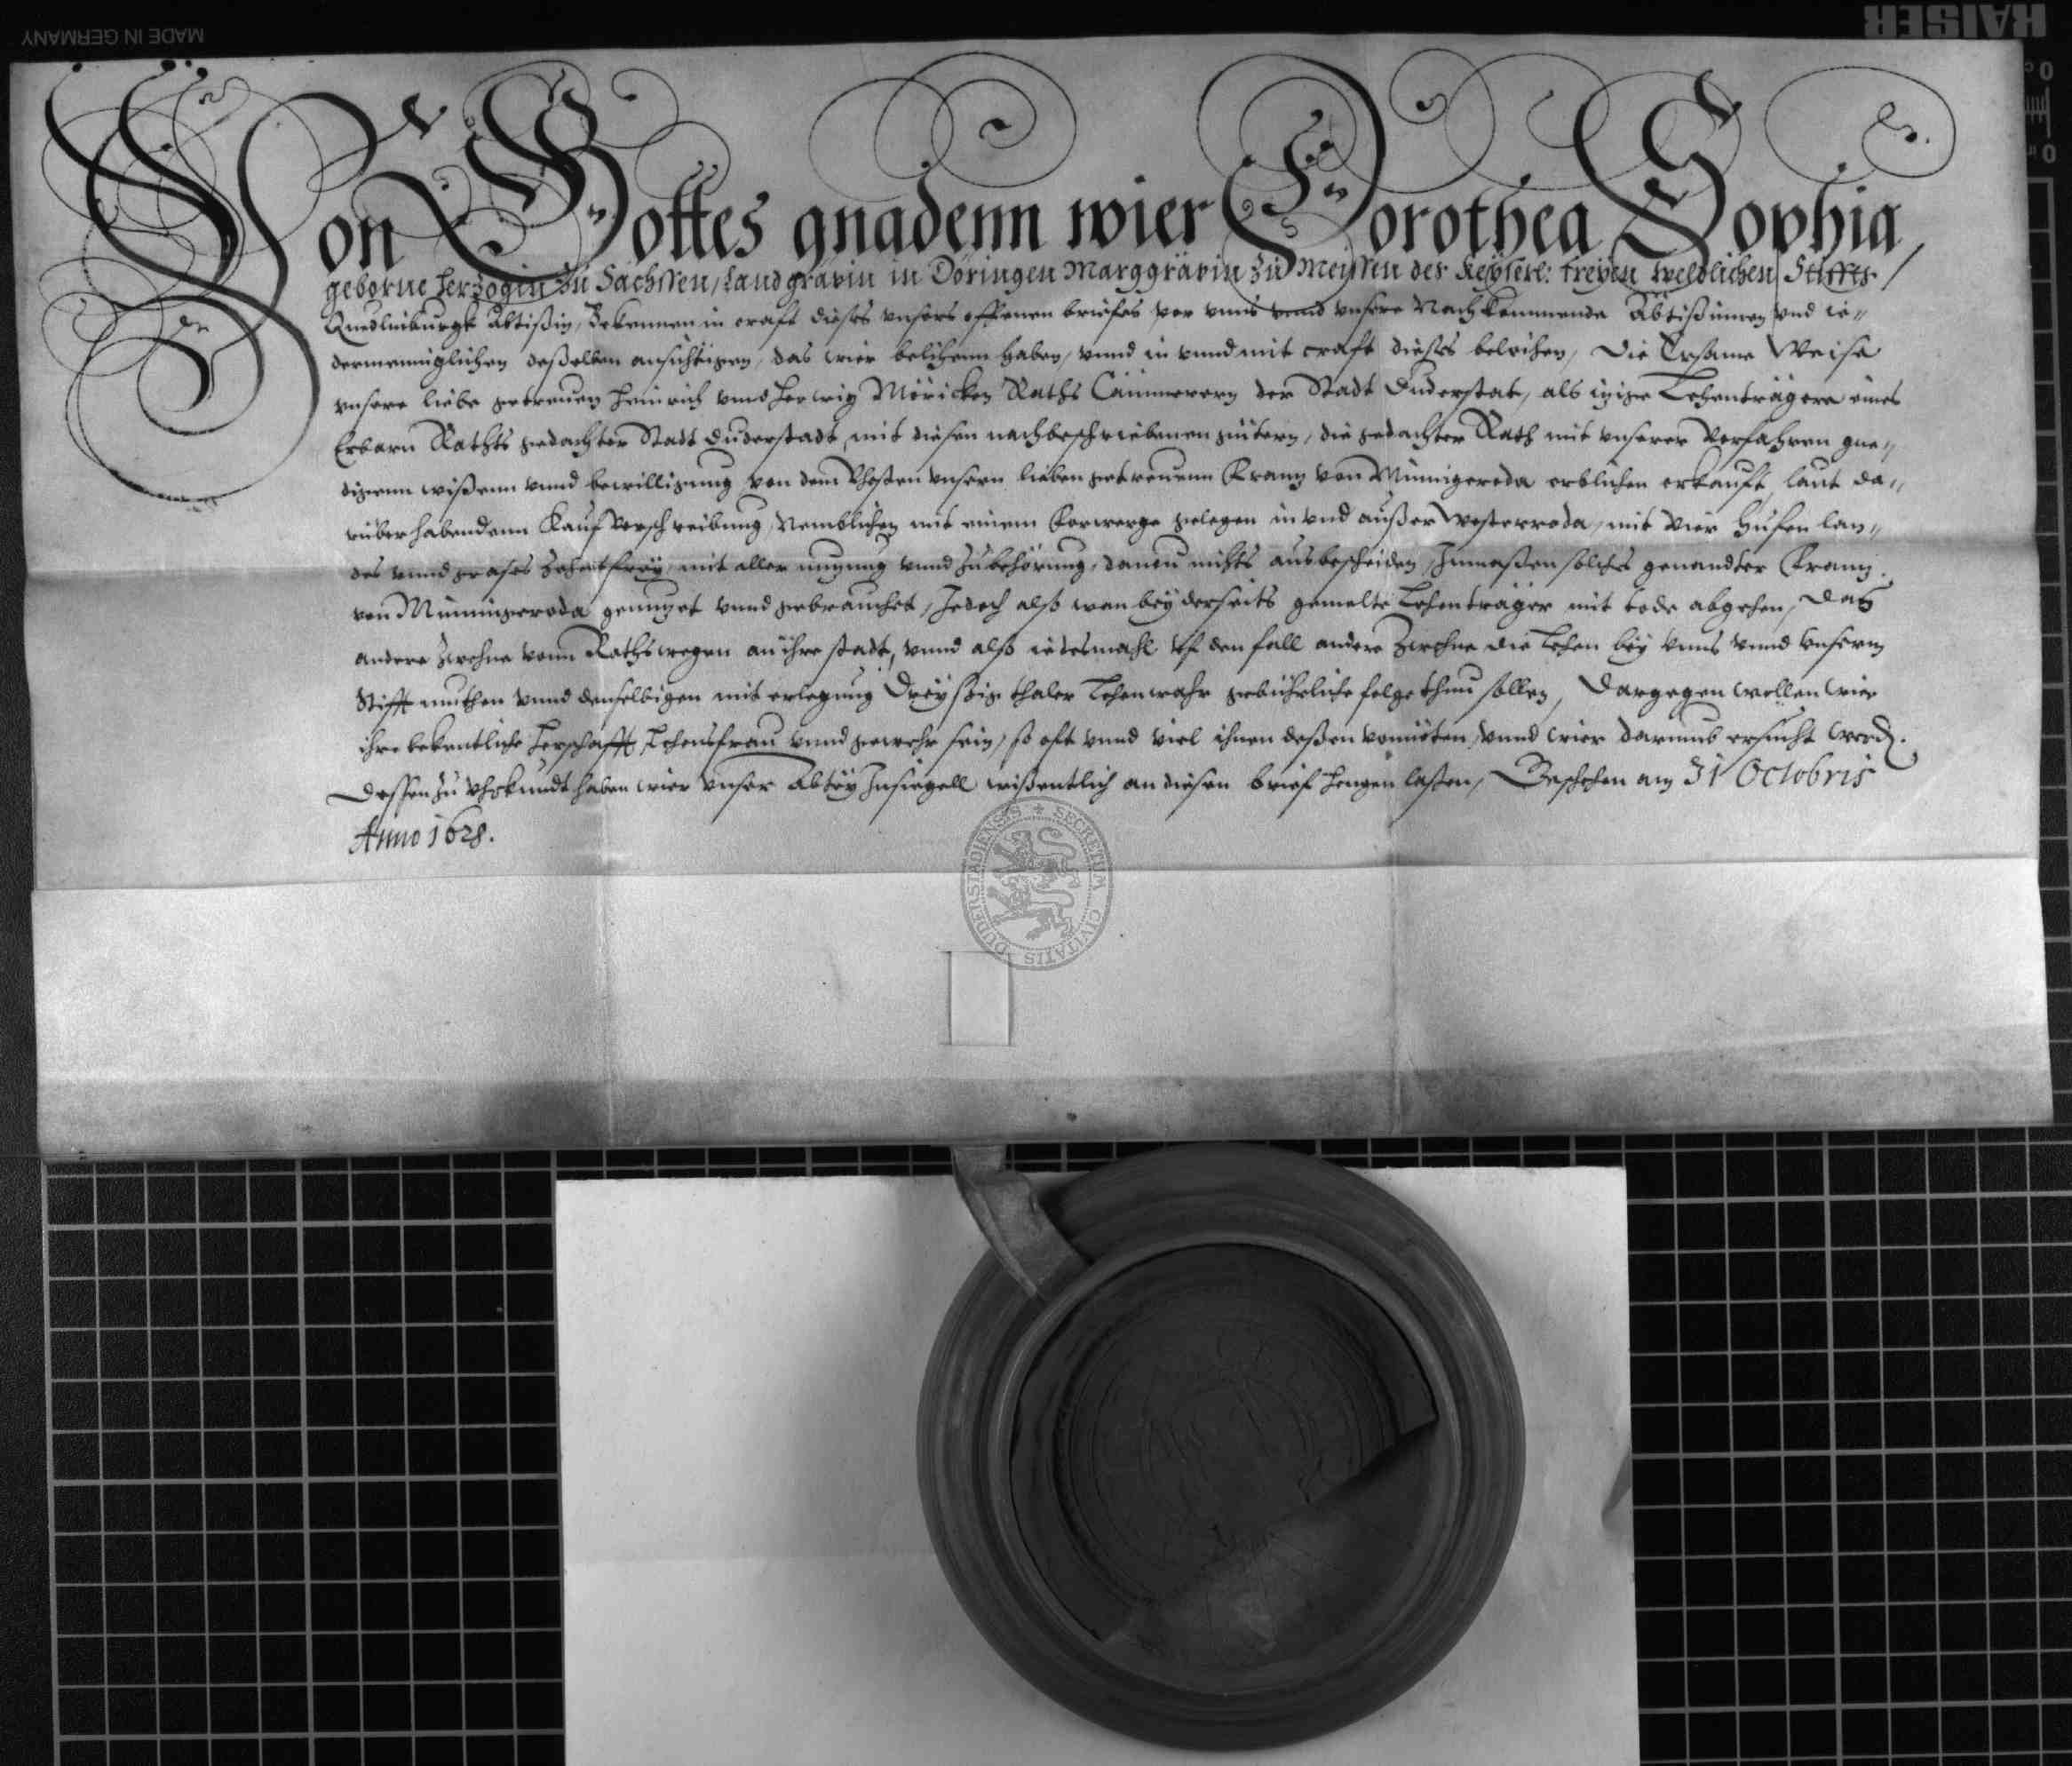 MADE IN GERMANY
KAISER
Von Gottes gnadenn wier Dorothea Sophia,
geborne Herzogin zu Sachssen, Landgrävin in Döringen Marggrävin zu Meyssen des Keyserl: freyen weldlichen Stiffts
Quedlinburgk Abtißin, Bekennen in craft dieses unsers offenen briefes vor unns unnd unsere Nachkommende Äbtißinnen und ie„
dermenniglichen deßelben ansichtigen, das wier belihenn haben, unnd in unnd mit craft dieses beleihen, Die Ersame Weise
unsere liebe getreuen Heinrich unnd Herwig Möricken Raths Cämmerern der Stadt Duderstat, als itzige Lehenträgere eines
Erbarn Rathts gedachter Stadt Duderstadt, mit diesen nachbeschriebenen gütern, die gedachter Rath mit unserer Vorfahren gne„
digenn wißenn unnd bewilligung von dem Vhesten unsern lieben getreuenn Frantz von Minnigeroda erblichen erkauft, laut da„
rüber habendenn Kauf Verschreibung, Nemblichen mit einem Forwerge gelegen in und außer Westerroda, mit Vier Hufen lan„
des unnd grases Zehentfrey, mit aller nutzung unnd Zubehörung, davon nichts ausbescheiden, Inmaßen solches genandter Frantz
von Minnigeroda genutzet unnd gebrauchet, Jedoch alß wan beyderseits gemelte Lehenträger mit tode abgehen, Das
andere Zweene vonn Rathswegen an ihre stadt, unnd alß iedesmahl uf den fall andere Zweene die Lehen bey unns unnd unserm
Stifft muthen unnd denselbigen mit erlegung Dreyßig thaler Lehenwahr gebührliche folge thun sollen, Dargegen wollen wier
ihre bekentliche Herschafft, Lehensfrau unnd gewehr sein, so oft unnd viel ihnen deßen vonnöten, unnd wier darumb ersucht werd.
Dessen zu Uhrkundt haben wier unser Abtey Insiegell wißentlich an diesen brief hengen laßen, Geschehen am 31 Octobris
Anno 1628.
SECRETUM CIVITATIS DUDERSTADIENSIS